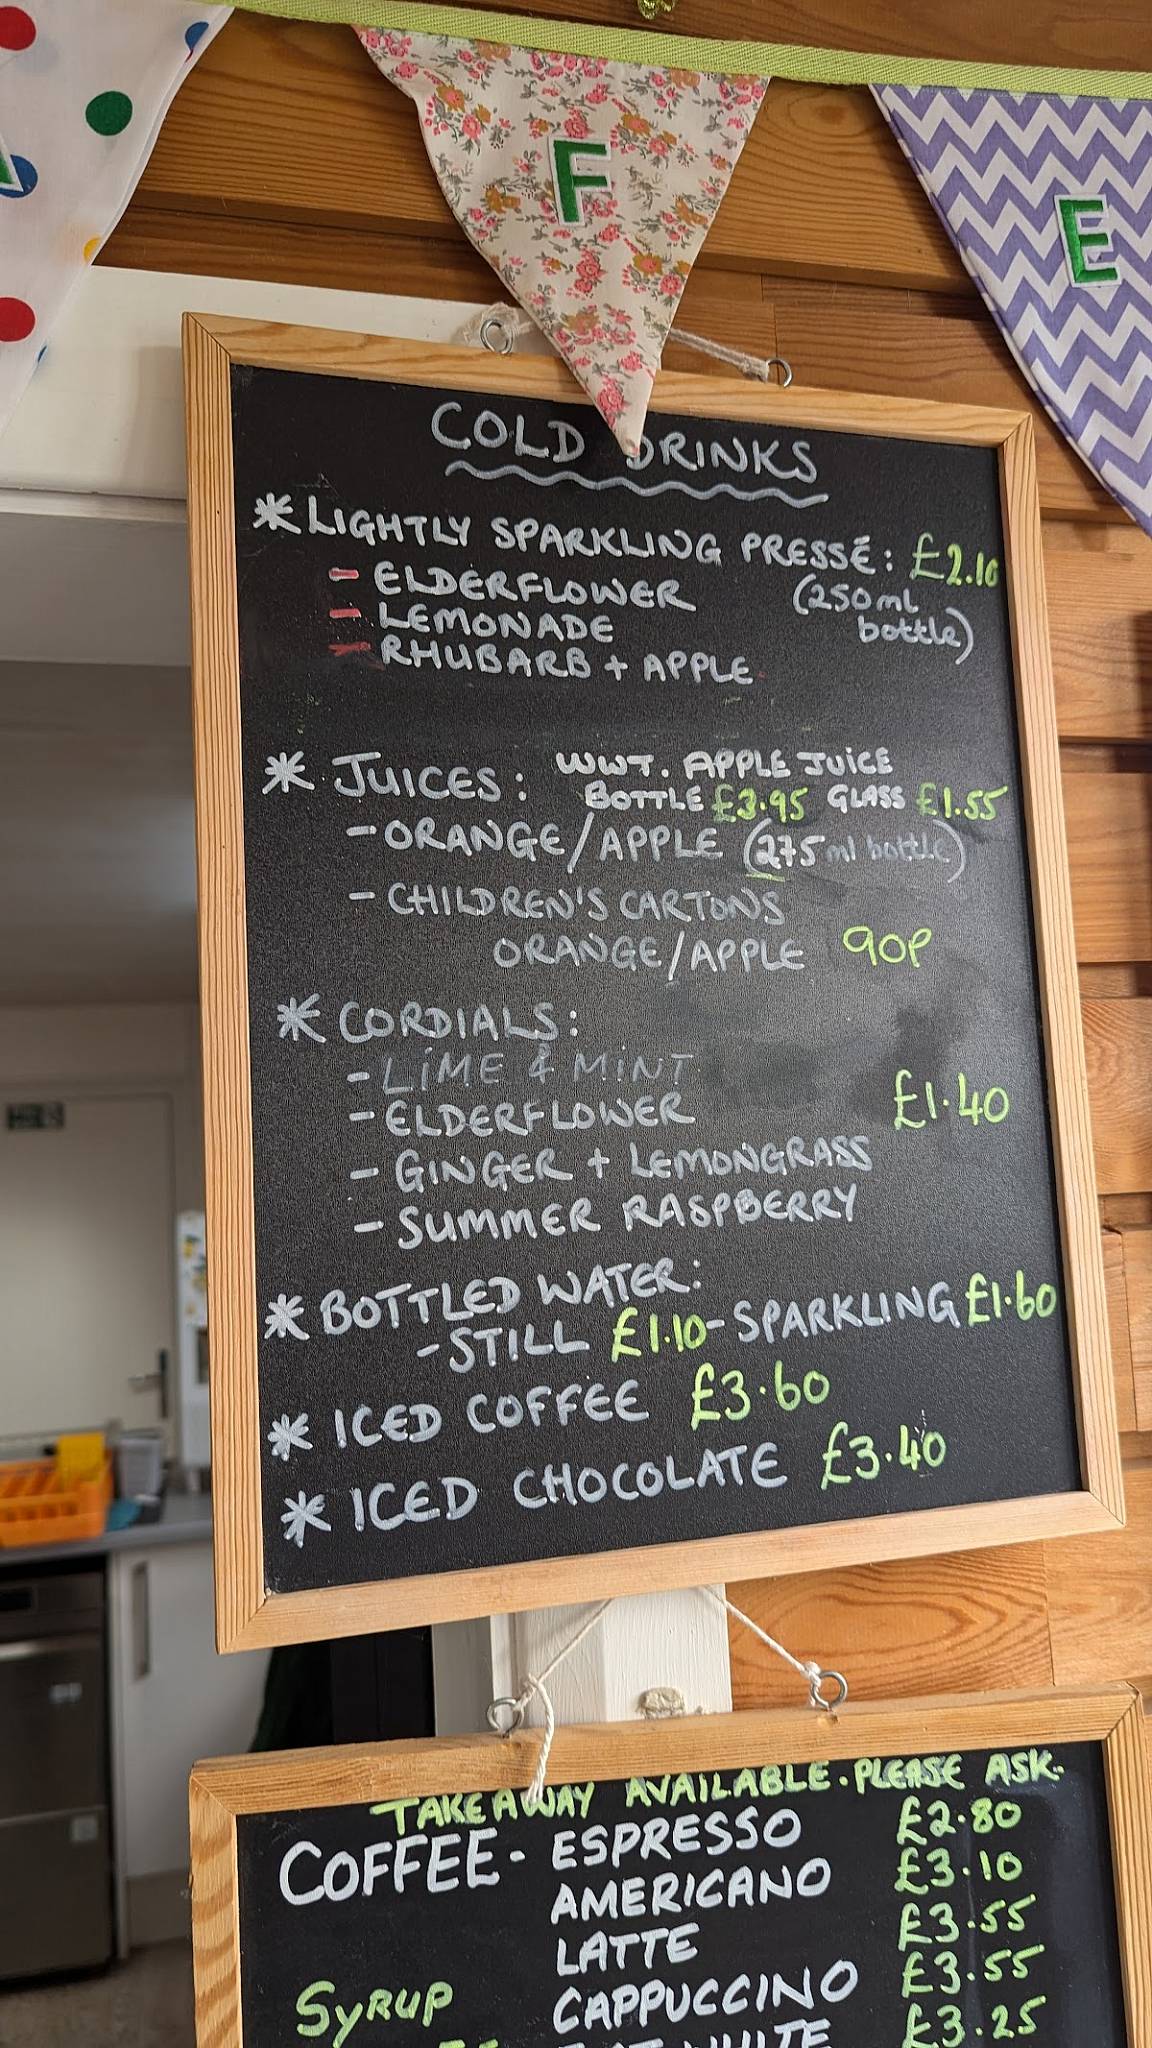 F E
COLD DRINKS
* LIGHTLY SPARKLING PRESSÉ: £2.10
- ELDERFLOWER (250ml
- LEMONADE bottle)
- RHUBARB + APPLE
* JUICES: WWT. APPLE JUICE
BOTTLE £3.95 GLASS £1.55
- ORANGE/APPLE (275ml bottle)
- CHILDREN'S CARTONS
ORANGE/APPLE 90P
* CORDIALS:
- LIME & MINT
- ELDERFLOWER £1.40
- GINGER + LEMONGRASS
- SUMMER RASPBERRY
* BOTTLED WATER:
- STILL £1.10 - SPARKLING £1.60
* ICED COFFEE £3.60
* ICED CHOCOLATE £3.40
TAKEAWAY AVAILABLE. PLEASE ASK.
COFFEE - ESPRESSO £2.80
AMERICANO £3.10
LATTE £3.55
SYRUP CAPPUCCINO £3.55
WHITE £3.25